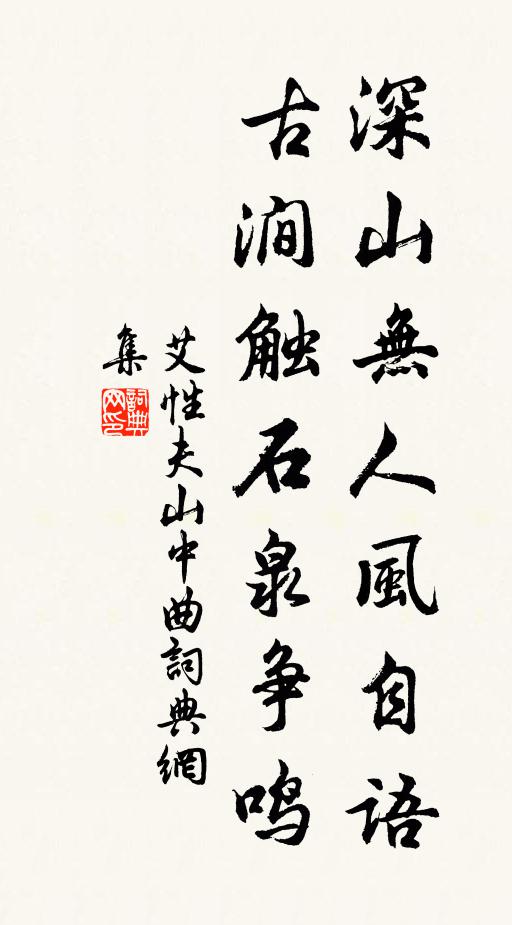 深山無人風自語
古涧触石泉争鸣
艾性夫山中曲詞典網
集
詞典
网印